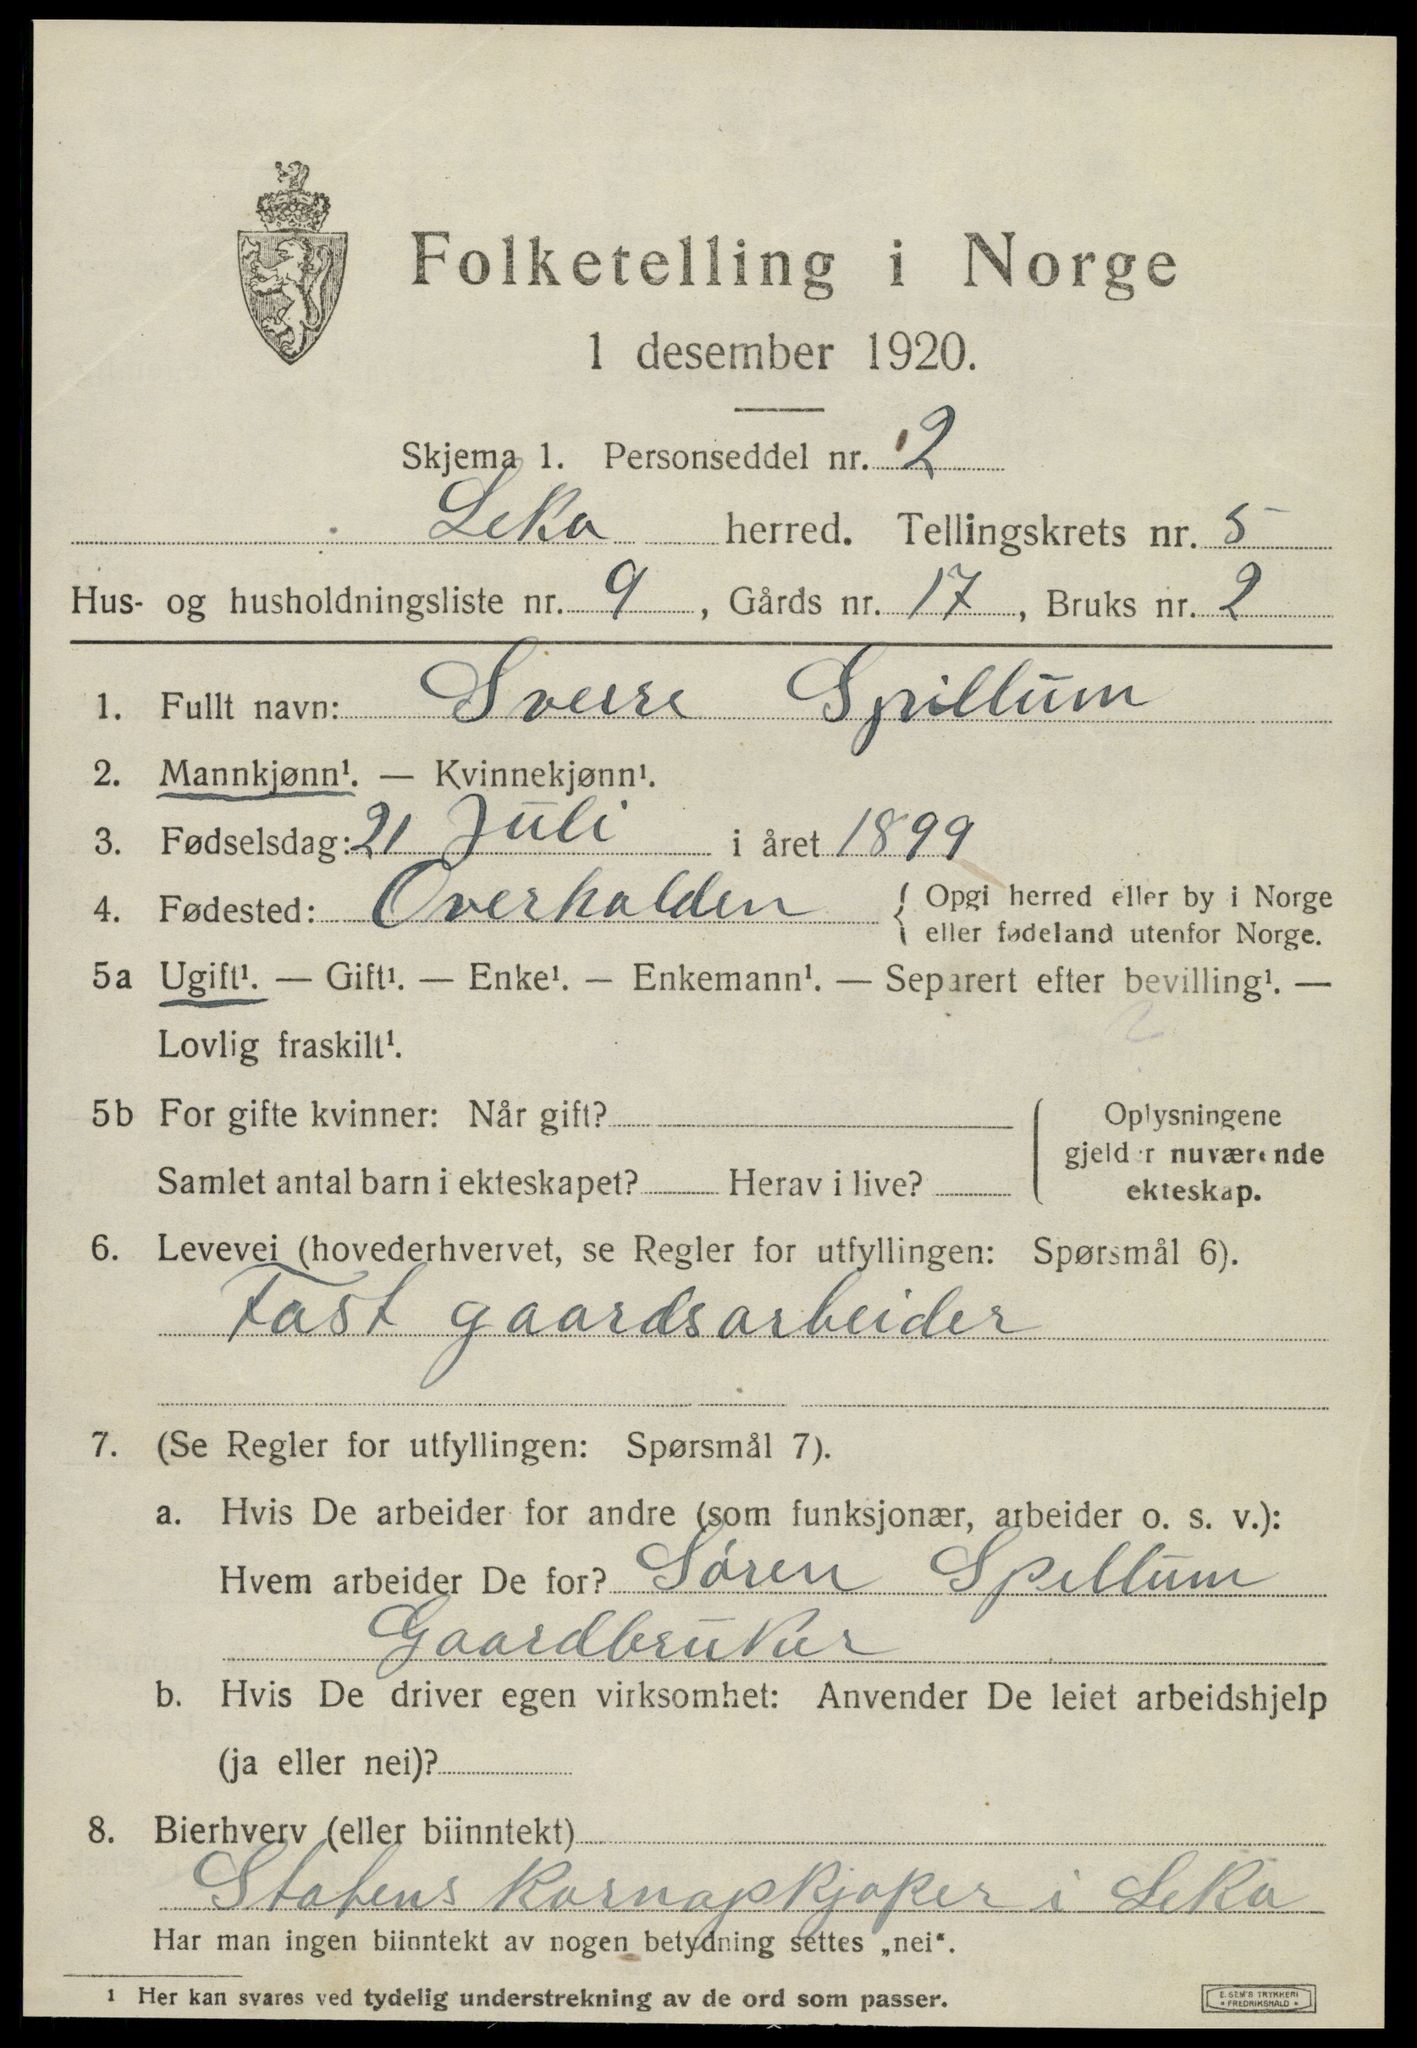 Folketelling i Norge
1 desember 1920.
Skjema 1. Personseddel nr. 2
Leka herred. Tellingskrets nr. 5
Hus- og husholdningsliste nr. 9, Gårds nr. 17, Bruks nr. 2
1. Fullt navn: Sverre Spillum
2. Mannkjønn¹. — Kvinnekjønn¹.
3. Fødselsdag: 21 Juli i året 1899
4. Fødested: Overhalden { Opgi herred eller by i Norge
eller fødeland utenfor Norge.
5a Ugift¹. — Gift¹. — Enke¹. — Enkemann¹. — Separert efter bevilling¹. —
Lovlig fraskilt¹.
5b For gifte kvinner: Når gift?
Samlet antal barn i ekteskapet? Herav i live?
Oplysningene
gjelder nuværende
ekteskap.
6. Levevei (hovederhvervet, se Regler for utfyllingen: Spørsmål 6).
Fast gaardsarbeider
7. (Se Regler for utfyllingen: Spørsmål 7).
a. Hvis De arbeider for andre (som funksjonær, arbeider o. s. v.):
Hvem arbeider De for? Søren Spillum
Gaardbruker
b. Hvis De driver egen virksomhet: Anvender De leiet arbeidshjelp
(ja eller nei)?
8. Bierhverv (eller biinntekt)
Statens kornopkjøper i Leka
Har man ingen biinntekt av nogen betydning settes „nei“.
¹ Her kan svares ved tydelig understrekning av de ord som passer.
E. SEM'S TRYKKERI
FREDRIKSHALD